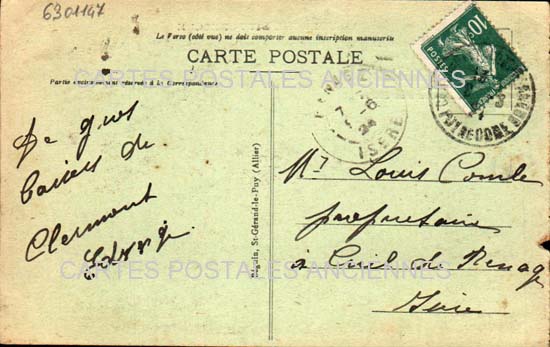 6301147
Le Verso (côté vue) ne doit comporter aucune inscription manuscrite
CARTE POSTALE
Partie exclusivement réservée à la Correspondance
CARTES POSTALES ANCIENNES
De gros
baisers de
Clermont
Béguin, St-Gérand-le-Puy (Allier)
ISERE
7 -6
10
PUY DE DOME
Mr Louis Comte
propriétaire
à Cuil de
Isère
CARTES POSTALES ANCIENNES